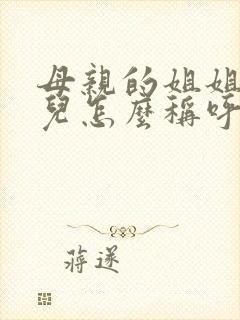 母親的姐姐
兒怎麼稱呼
蔣遂